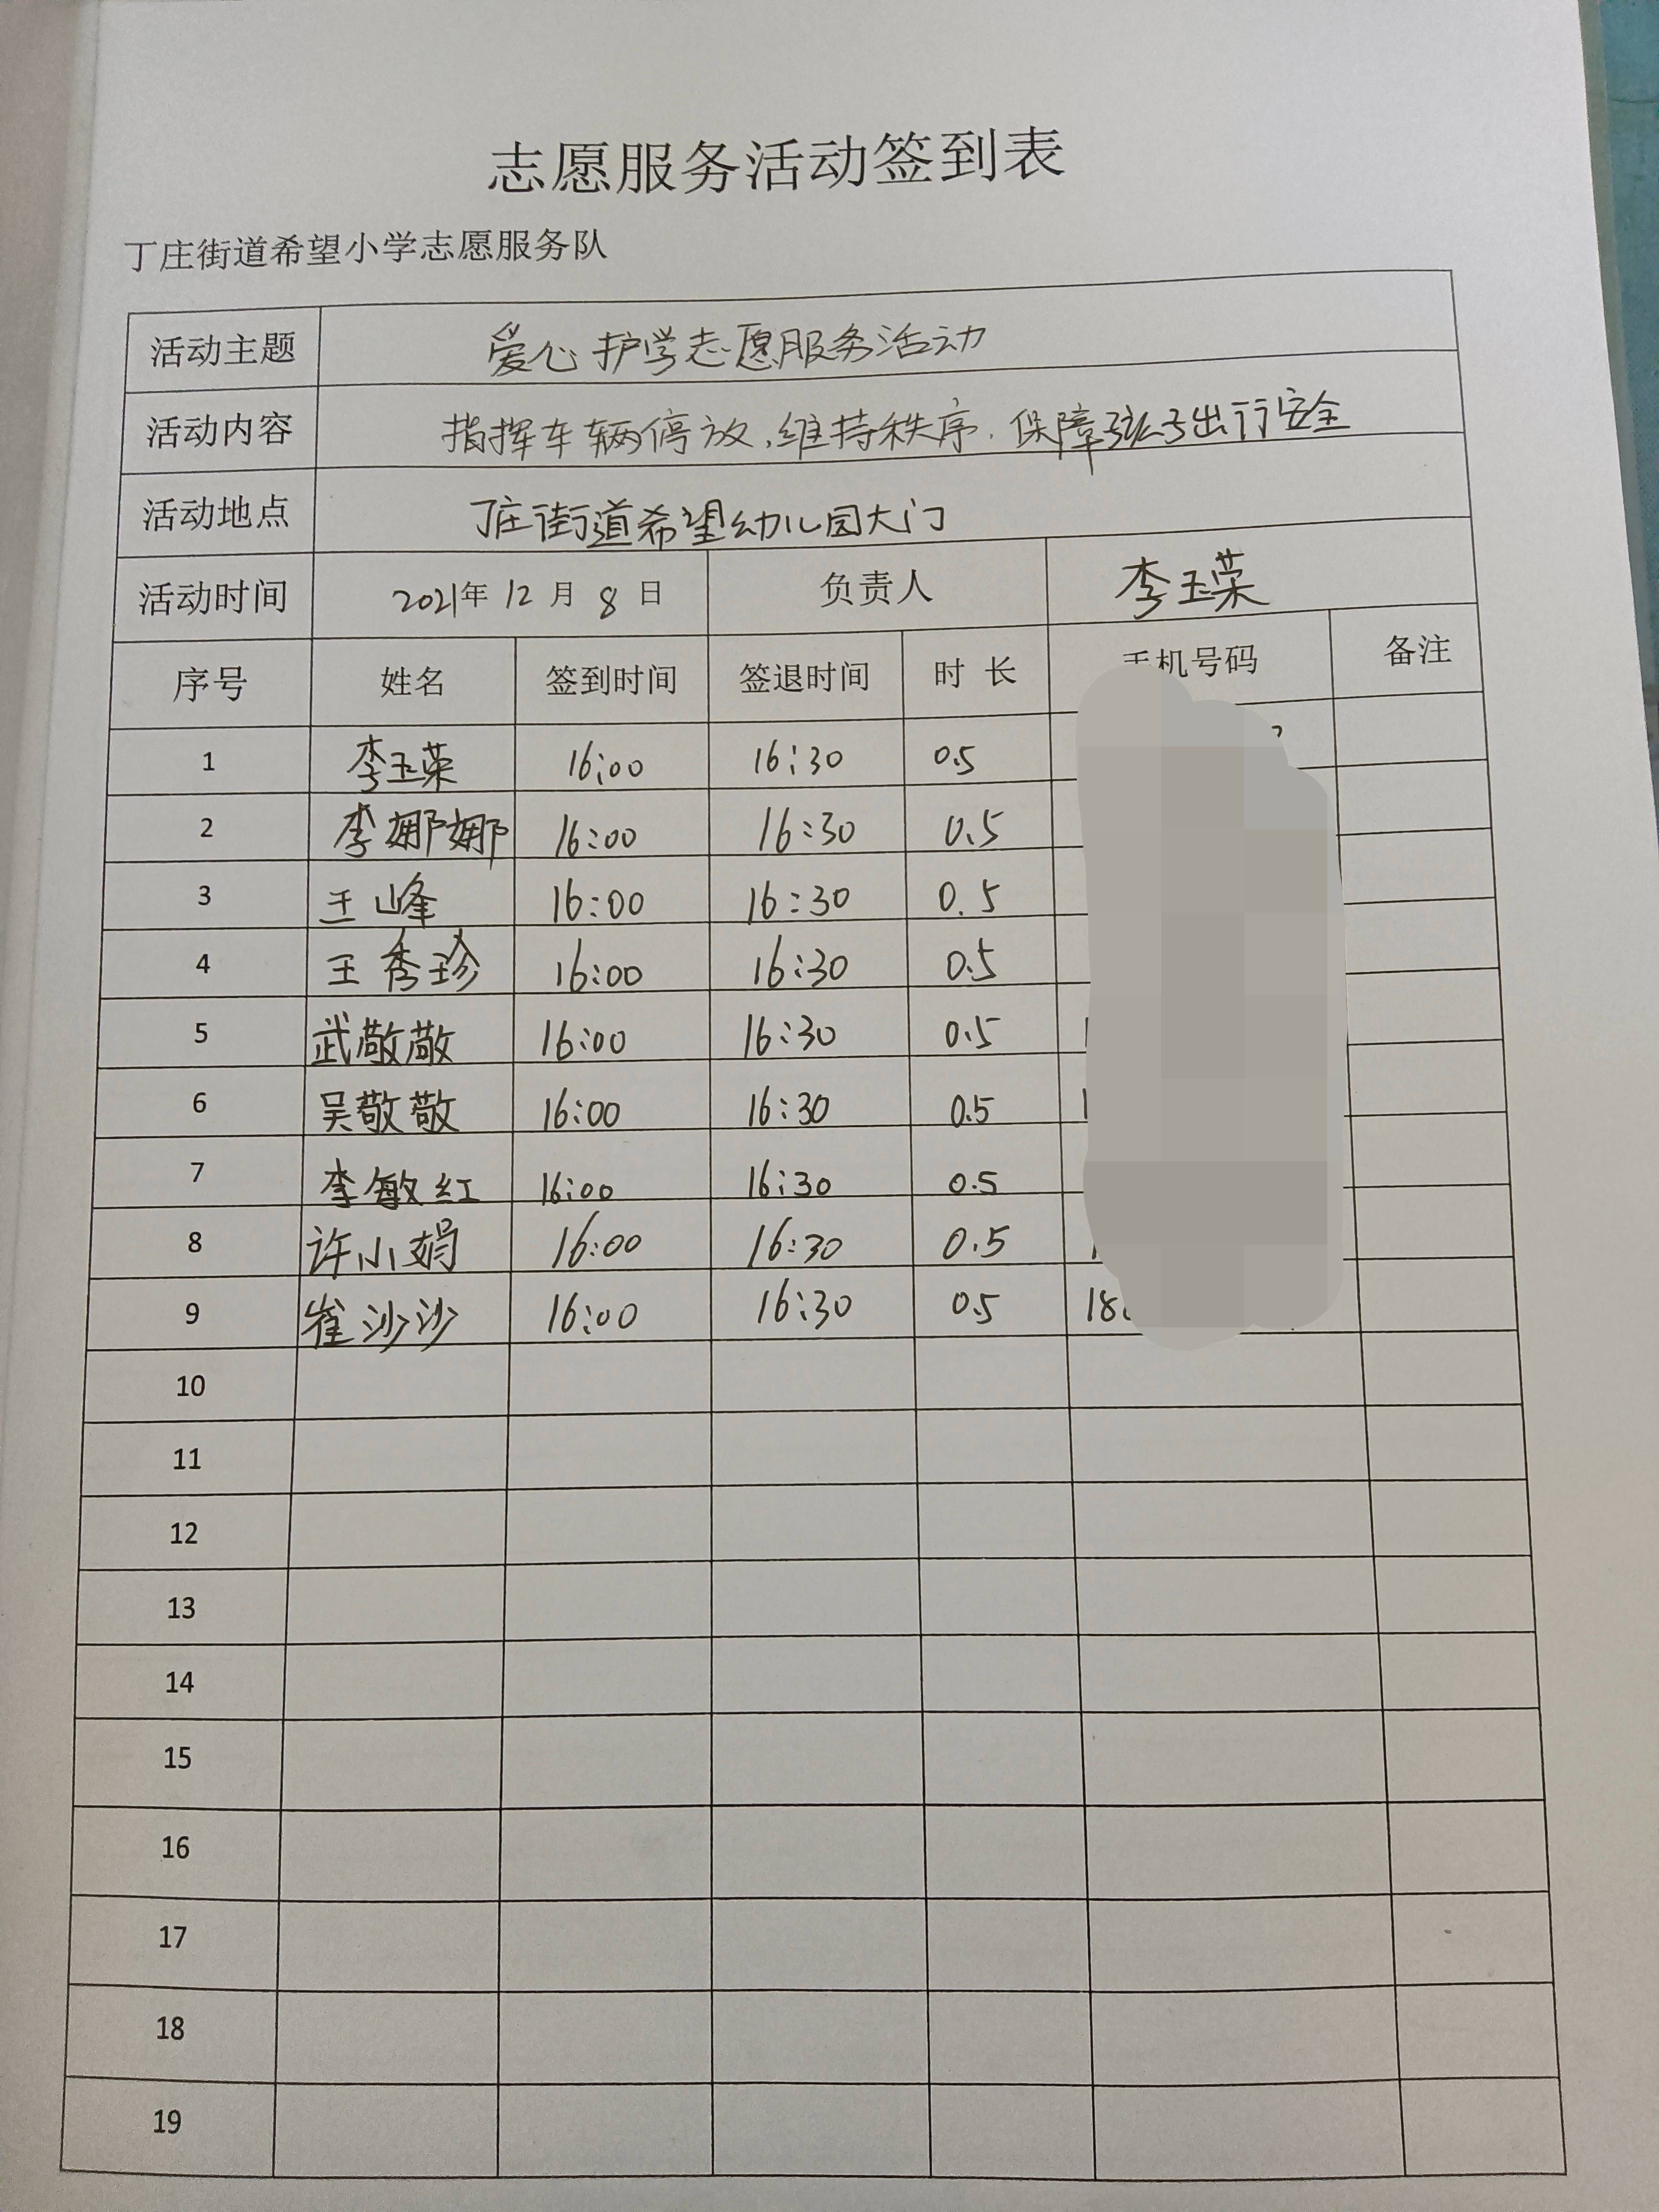 志愿服务活动签到表
丁庄街道希望小学志愿服务队
活动主题 爱心护学志愿服务活动
活动内容 指挥车辆停放,维持秩序,保障孩子出行安全
活动地点 丁庄街道希望幼儿园大门
活动时间 2021年 12 月 8 日 负责人 李玉荣
序号 姓名 签到时间 签退时间 时 长 手机号码 备注
1 李玉荣 16:00 16:30 0.5
2 李娜娜 16:00 16:30 0.5
3 王峰 16:00 16:30 0.5
4 王秀珍 16:00 16:30 0.5
5 武敬敬 16:00 16:30 0.5
6 吴敬敬 16:00 16:30 0.5
7 李敏红 16:00 16:30 0.5
8 许小娟 16:00 16:30 0.5
9 崔沙沙 16:00 16:30 0.5 18
10
11
12
13
14
15
16
17
18
19